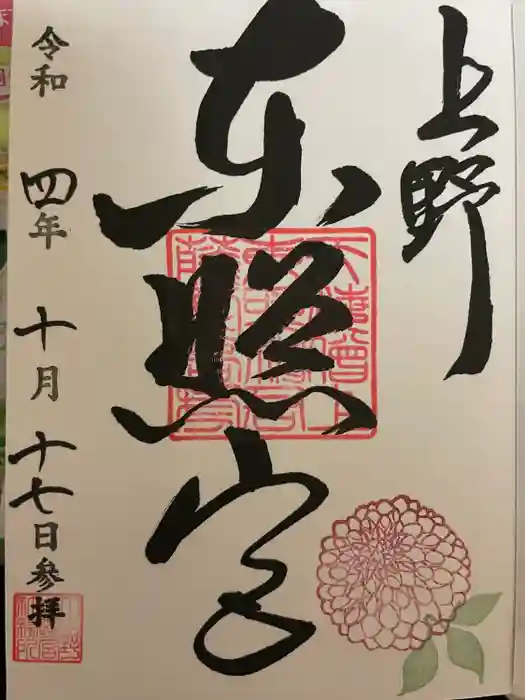 上野
东照宮
令和四年十月十七日参拝